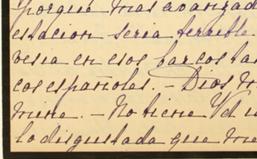 porque mas avanzad
estacion seria terrible
vesia en esos barcos ta
cos españoles. - Dios m
mine. - No tiene Vd i
lo disgustada que me